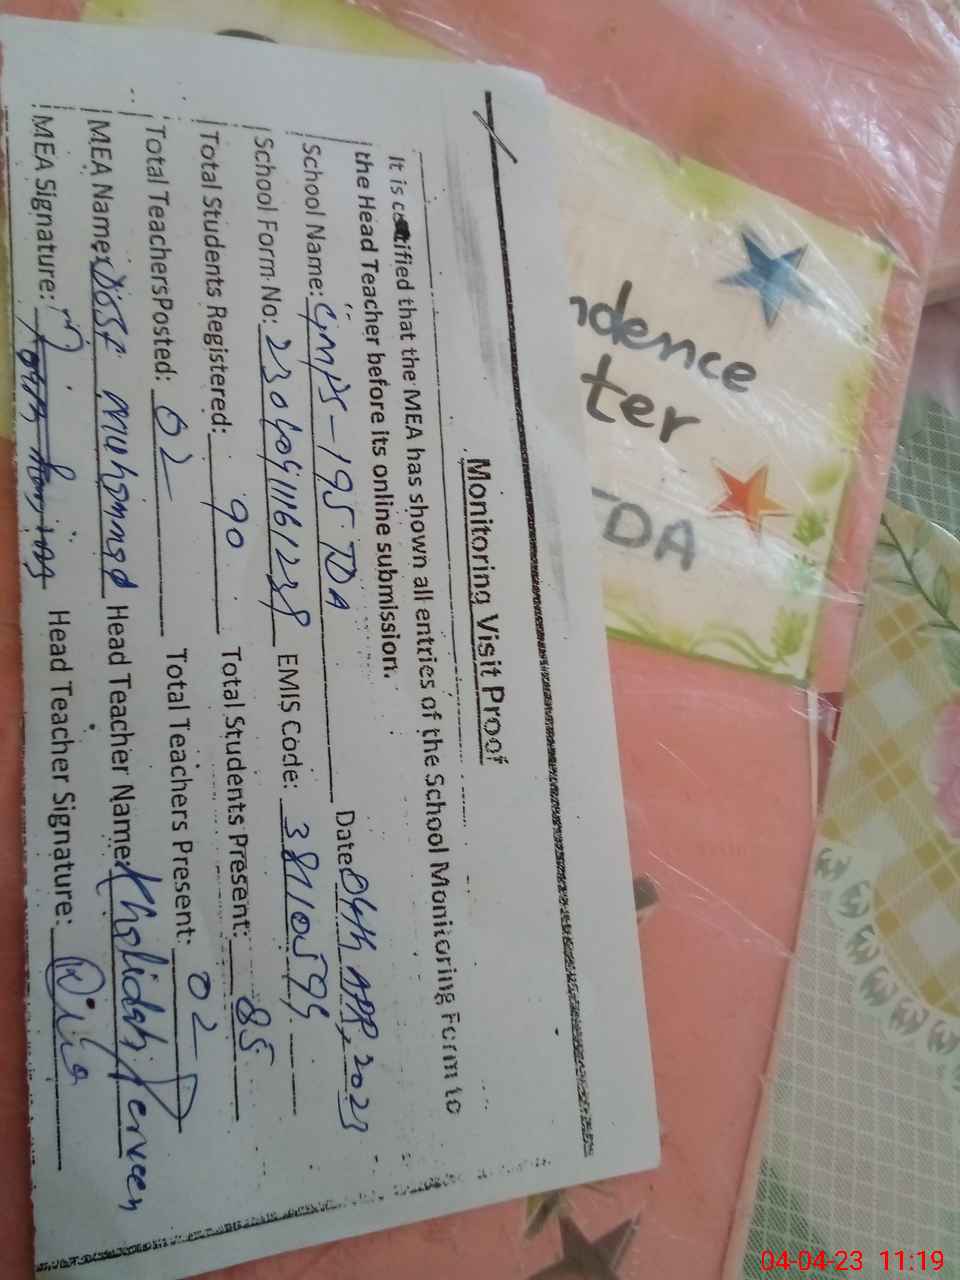 Monitoring Visit Proof
It is certified that the MEA has shown all entries of the School Monitoring Form to
the Head Teacher before its online submission.
School Name: GMPS-195.DA Date: 04th APR, 2023
School Form No: EMIS Code:
Total Students Registered: 90 Total Students Present: 85
Total TeachersPosted: 02 Total Teachers Present: 02
MEA Name: Dost Muhammad Head Teacher Name: Khalidah Perveen
MEA Signature: Head Teacher Signature:
ndence
ter
TDA
04-04-23 11:19